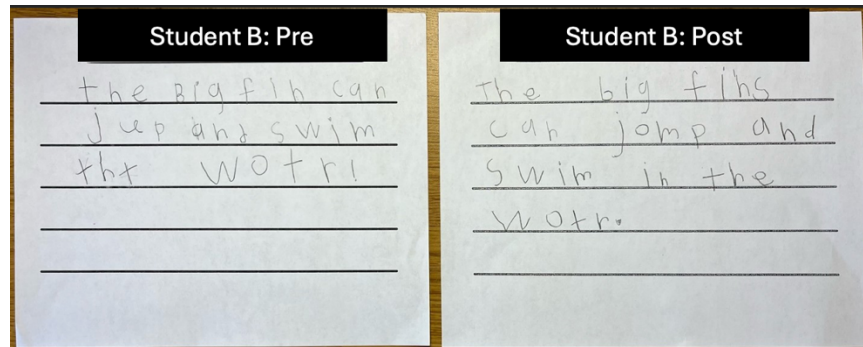 Student B: Pre
the Big fin can
jup and swim
tht wotr!
Student B: Post
The big fihs
can jomp and
swim in the
wotr.